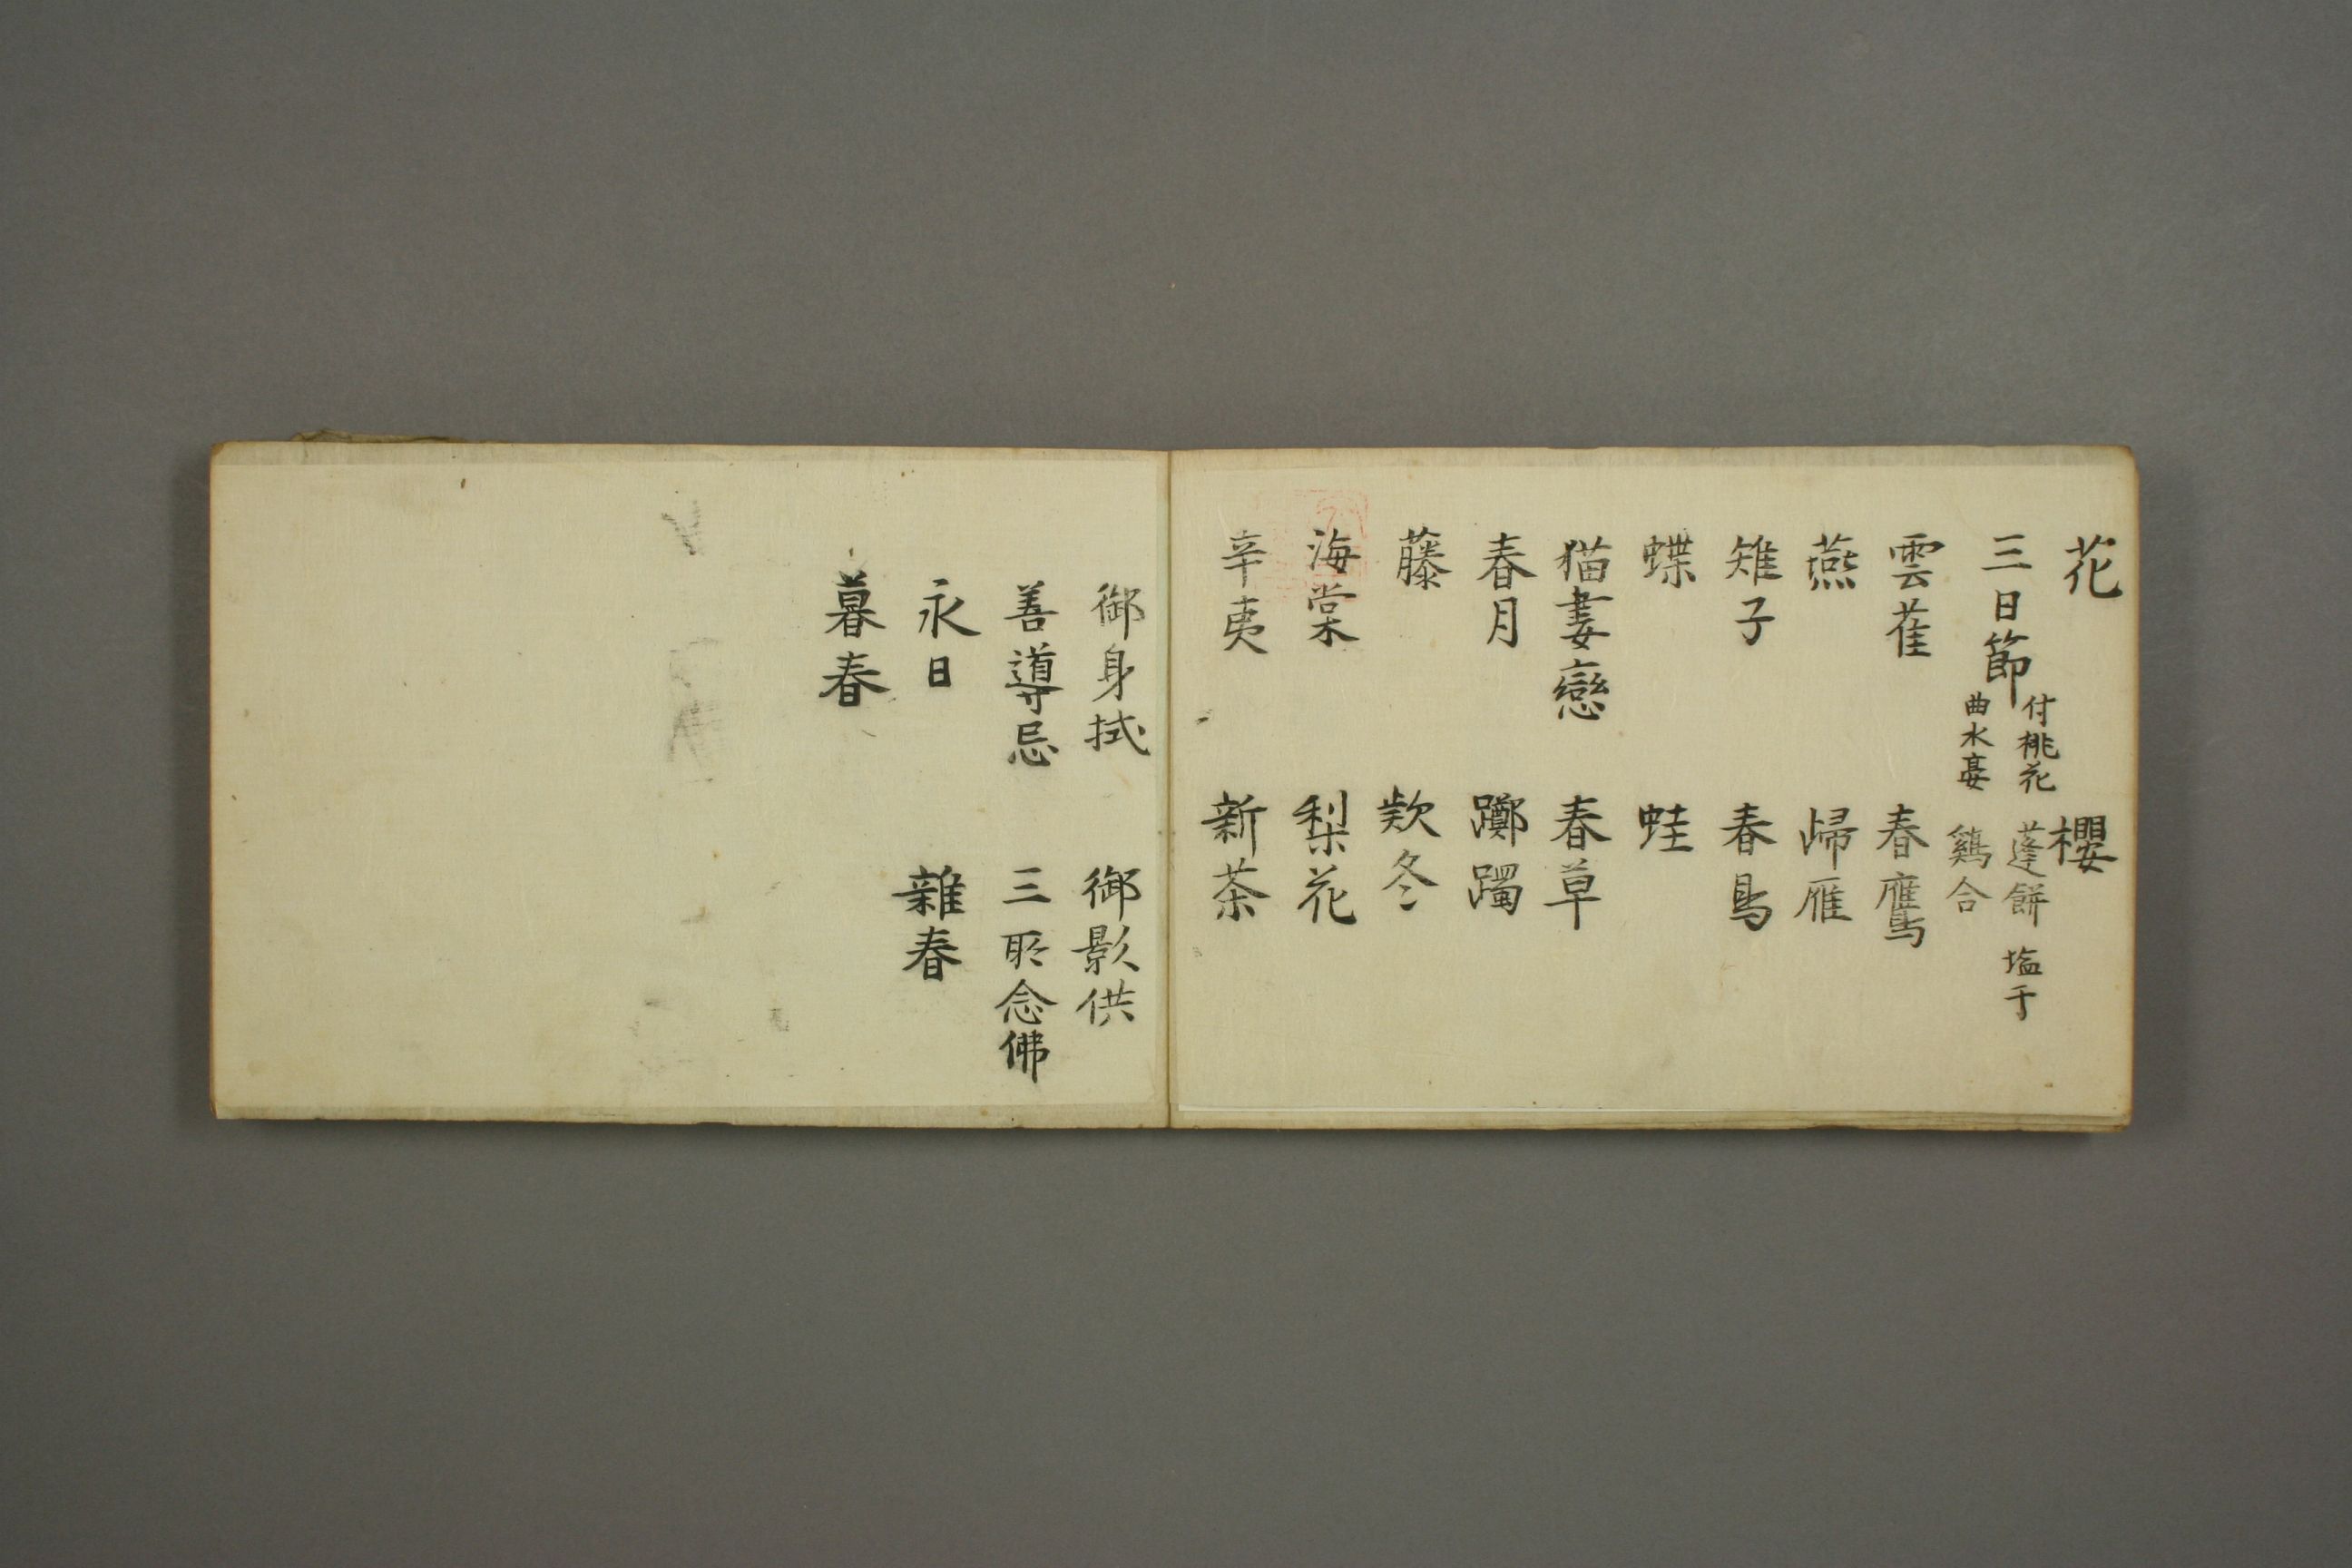 花　櫻
三日節　付桃花　蓬餅　塩干
曲水宴　鷄合
雲雀　春鷹
燕　帰雁
雉子　春鳥
蝶　蛙
猫妻戀　春草
春月　躑躅
藤　欵冬
海棠　梨花
辛夷　新茶
御身拭　御影供
善導忌　三所念佛
永日　雜春
暮春